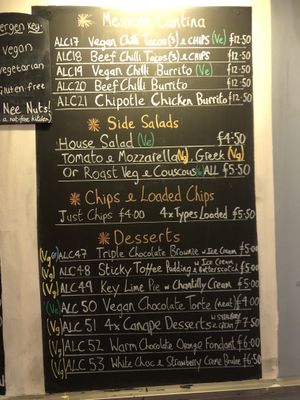 ergen Key
Vegan
egetarian
Gluten-free
Nee Nuts!
a nut-free kitchen)
Mexican Cantina
ALC17 Vegan Chilli Tacos(3) & CHIPS (Ve) £12·50
ALC18 Beef Chilli Tacos(3) & CHIPS £12·50
ALC19 Vegan Chilli Burrito (Ve) £12·50
ALC20 Beef Chilli Burrito £12·50
ALC21 Chipotle Chicken Burrito £12·50
Side Salads
House Salad (Ve) £4·50
Tomato & Mozzarella (Vg), Greek (Vg)
Or Roast Veg & Couscous Ve ALL £5·50
Chips & Loaded Chips
Just Chips £4.00 4x Types Loaded £5·50
Desserts
(Vg) ALC47 Triple Chocolate Brownie w Ice Cream £5·00
(Vg) ALC48 Sticky Toffee Pudding w Ice Cream & Butterscotch £5·00
(Vg) ALC49 Key Lime Pie w Chantilly Cream £5·00
(Ve) ALC50 Vegan Chocolate Torte (neat) £4·00
(Vg) ALC51 4x Canape Desserts w Strawbs & Cream £7·50
(Vg) ALC52 Warm Chocolate Orange Fondant £6·00
(Vg) ALC53 White Choc & Strawberry Creme Brulee £6·50